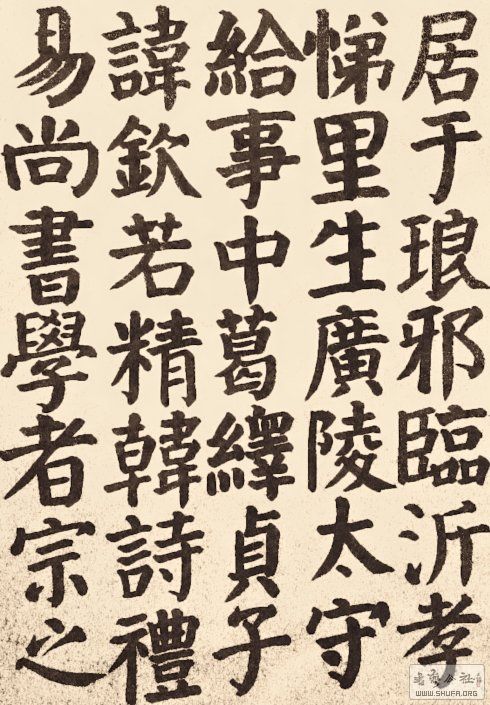 居于琅邪臨沂孝
悌里生廣陵太守
給事中葛繹貞子
諱欽若精韓詩禮
易尚書學者宗之
WWW.SHUFA.ORG